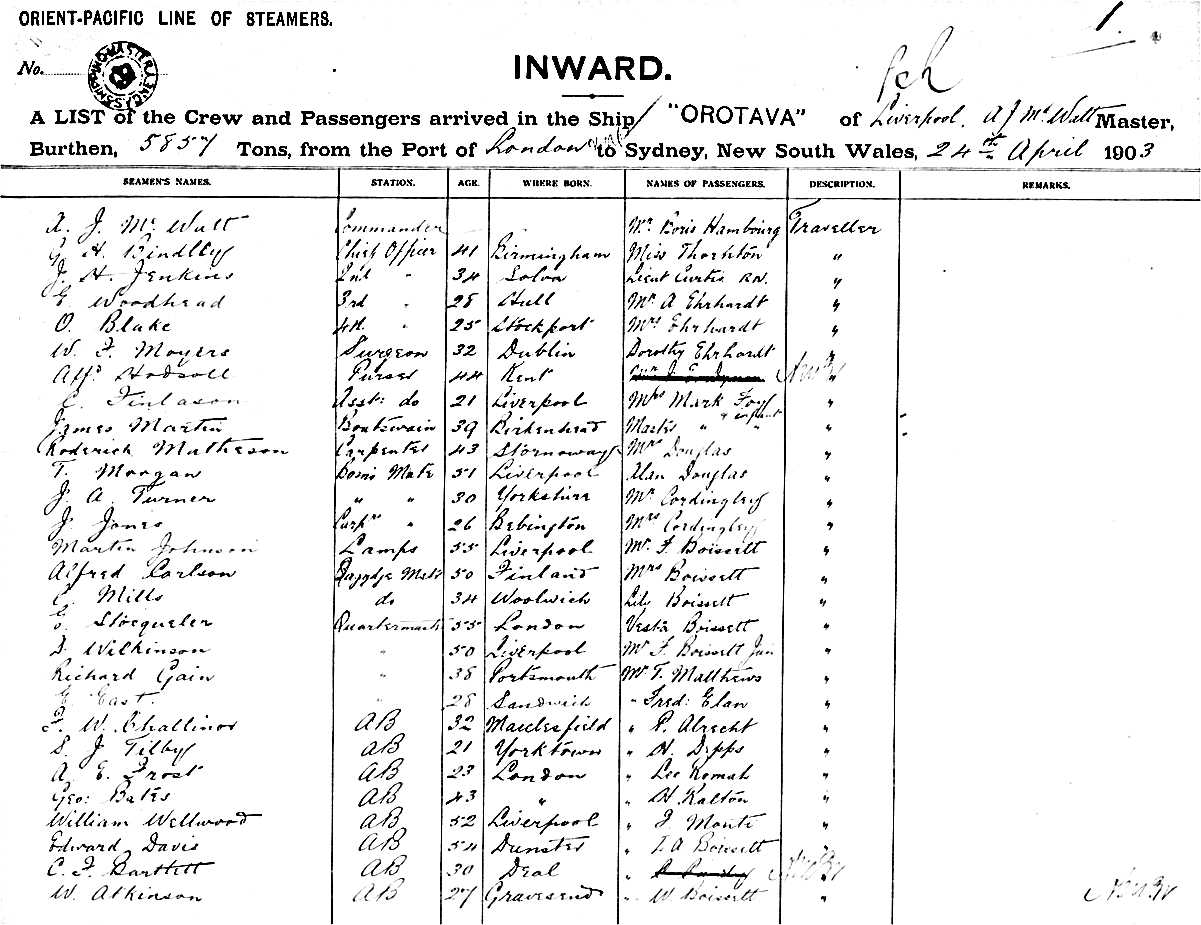 ORIENT-PACIFIC LINE OF STEAMERS. 1.
No.
INWARD.
A LIST of the Crew and Passengers arrived in the Ship "OROTAVA" of Liverpool, A J McWatt Master,
Burthen, 5857 Tons, from the Port of London to Sydney, New South Wales, 24th April 1903
SEAMEN'S NAMES. STATION. AGE. WHERE BORN. NAMES OF PASSENGERS. DESCRIPTION. REMARKS.
A. J. Mc Watt Commander Mr Boris Hambourg Traveller
G. H. Bindley Chief Officer 41 Birmingham Miss Thornton "
J. H. Jenkins 2nd " 34 Lieut Curtis RN. "
E Woodhead 3rd " 28 Hull Mr A Ehrhardt "
O. Blake 4th " 25 Stockport Mrs Ehrhardt "
W. F. Moyers Surgeon 32 Dublin Dorothy Ehrhardt "
Alfd Hodsoll Purser 44 Kent "
C. Finlason Asst: do 21 Liverpool Mrs Mark Foy "
James Martin Boatswain 39 Birkenhead Master " " infant "
Roderick Matheson Carpenter 43 Stornoway Mrs Douglas "
T. Morgan Bosns Mate 51 Liverpool Alan Douglas "
J. A. Turner " " 30 Yorkshire Mr Cordingley "
J. Jones Carprs " 26 Bebington Mrs Cordingley "
Martin Johnson Lamps 55 Liverpool Mr F. Boissett "
Alfred Carlson 50 Finland Mrs Boissett "
C. Mills do 34 Woolwich Lily Boissett "
E. Stocqueler Quartermaster 55 London Vesta Boissett "
D. Wilkinson " 50 Liverpool Mr F. Boissett Jun "
Richard Gain " 38 Portsmouth Mr T. Matthews "
E. East. " 28 Sandwich " Fred: Elan "
F. W. Challinor AB 32 Macclesfield " P. Alrecht "
S. J. Tilby AB 21 Yorktown " H. Dipps "
A. E. Frost AB 23 London " Leo Romah "
Geo: Bates AB 43 " " H Kalton "
William Wellwood AB 52 Liverpool " J. Monte "
Edward Davis AB 54 Dunster " T. A Boissett "
C. F. Bartlett AB 30 Deal "
W. Atkinson AB 27 Gravesend " W. Boissett "